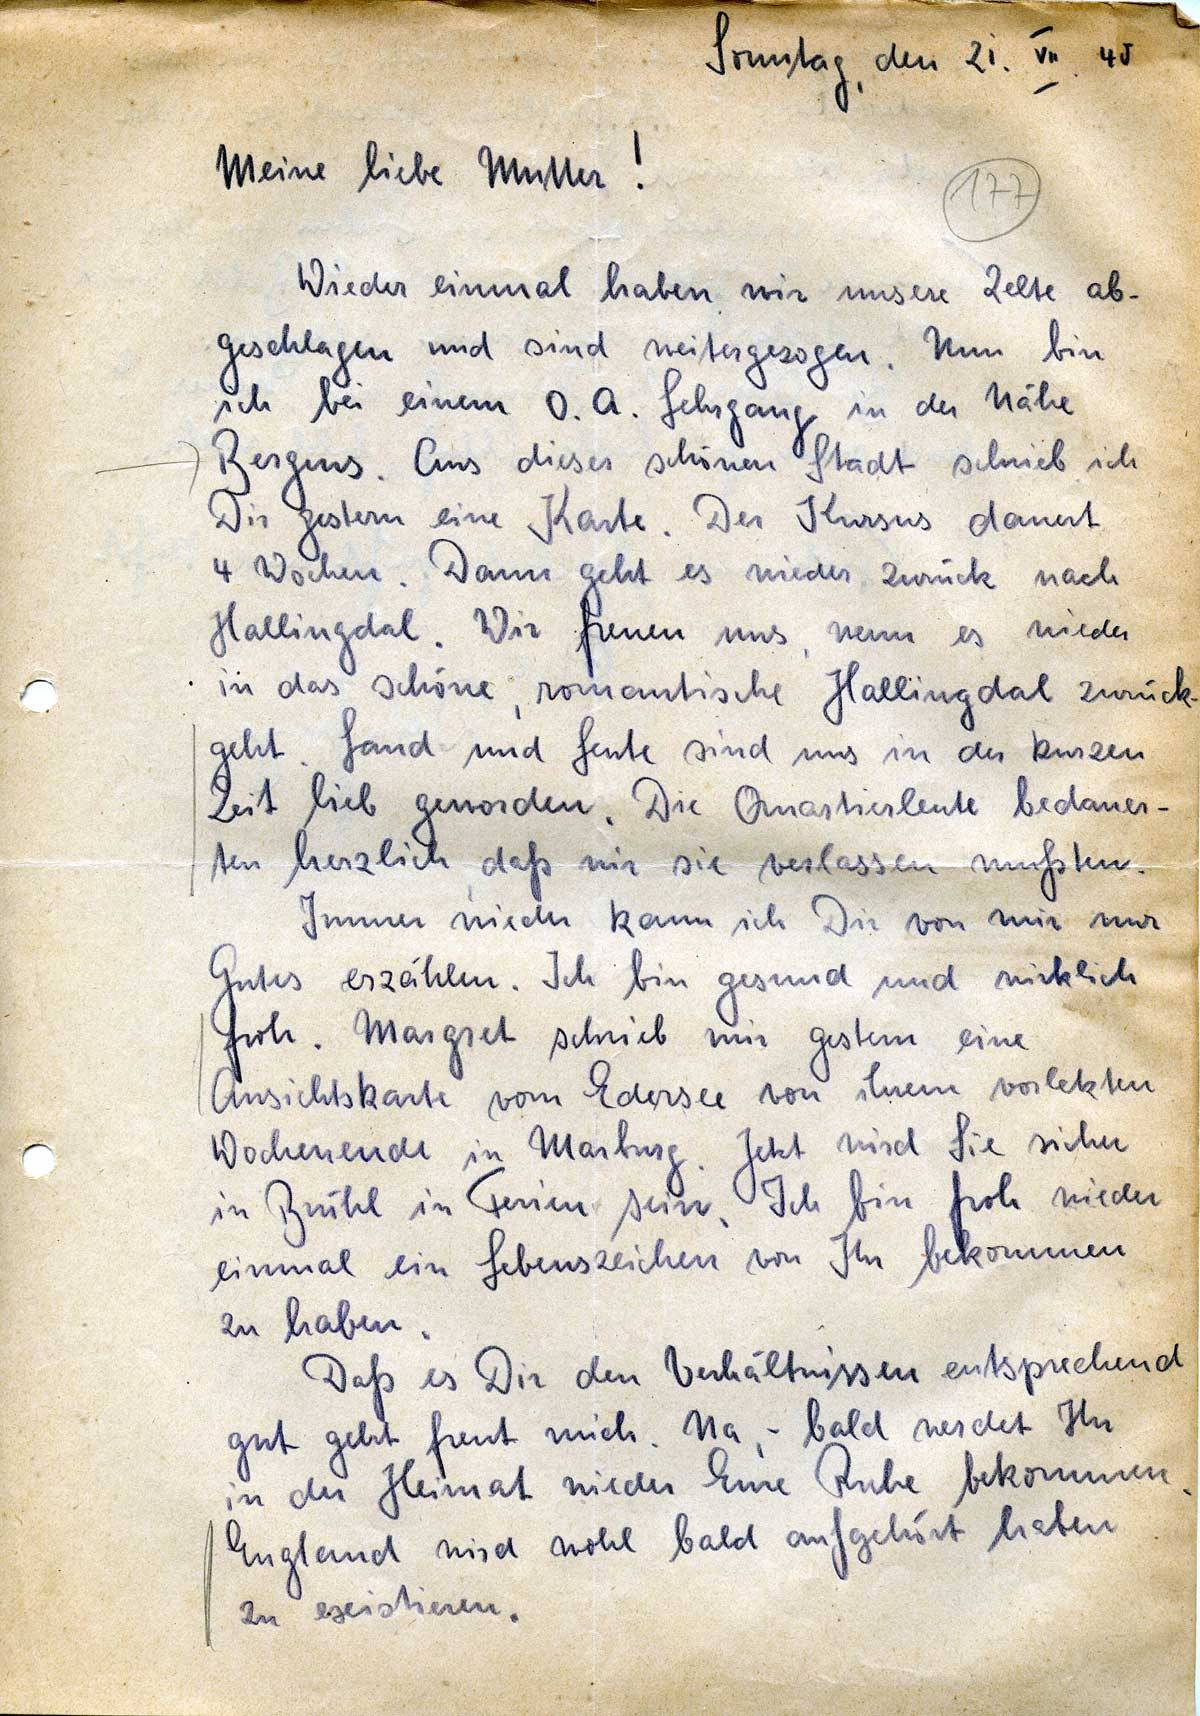 Sonntag, den 21. VII. 40
Meine liebe Mutter!
177
Wieder einmal haben wir unsere Zelte ab-
geschlagen und sind weitergezogen. Nun bin
ich bei einem O.A. Lehrgang in der Nähe
Bergens. Aus dieser schönen Stadt schrieb ich
Dir gestern eine Karte. Der Kursus dauert
4 Wochen. Dann geht es wieder zurück nach
Hallingdal. Wir freuen uns, wenn es wieder
in das schöne, romantische Hallingdal zurück-
geht. Land und Leute sind uns in der kurzen
Zeit lieb geworden. Die Quartiersleute bedauer-
ten herzlich, daß wir sie verlassen mußten.
Immer wieder kann ich Dir von mir nur
Gutes erzählen. Ich bin gesund und wirklich
froh. Margret schrieb mir gestern eine
Ansichtskarte vom Edersee von ihrem vorletzten
Wochenende in Marburg. Jetzt wird Sie sicher
in Brühl in Ferien sein. Ich bin froh wieder
einmal ein Lebenszeichen von Ihr bekommen
zu haben.
Daß es Dir den Verhältnissen entsprechend
gut geht freut mich. Na,- bald werdet Ihr
in der Heimat wieder Eure Ruhe bekommen.
England wird wohl bald aufgehört haben
zu existieren.